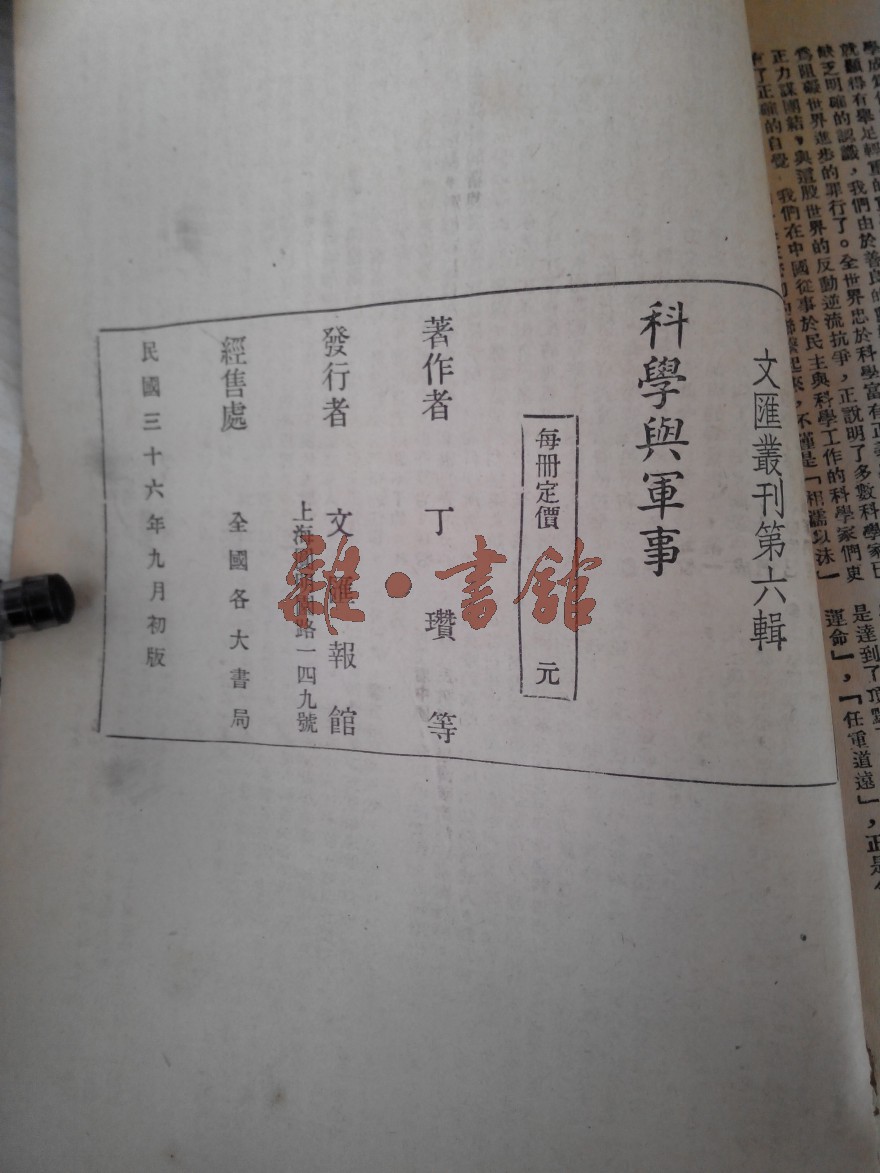 文匯叢刊第六輯
科學與軍事
每冊定價 元
著作者 丁瓚等
發行者 文匯報館
上海 路一四九號
經售處 全國各大書局
民國三十六年九月初版
雜·書館
就顯得有舉足輕重的
缺乏明確的認識,我們由於善良的
為阻礙世界進步的罪行了。全世界忠於科學富有正
正力謀團結,與這股世界的反動逆流抗爭,正說明了多數科學家已
了正確的自覺 我們在中國從事於民主與科學工作的科學家們更
起來,不僅是「相濡以沫」
是達到了頂點
運命」,「任重道遠」,正是